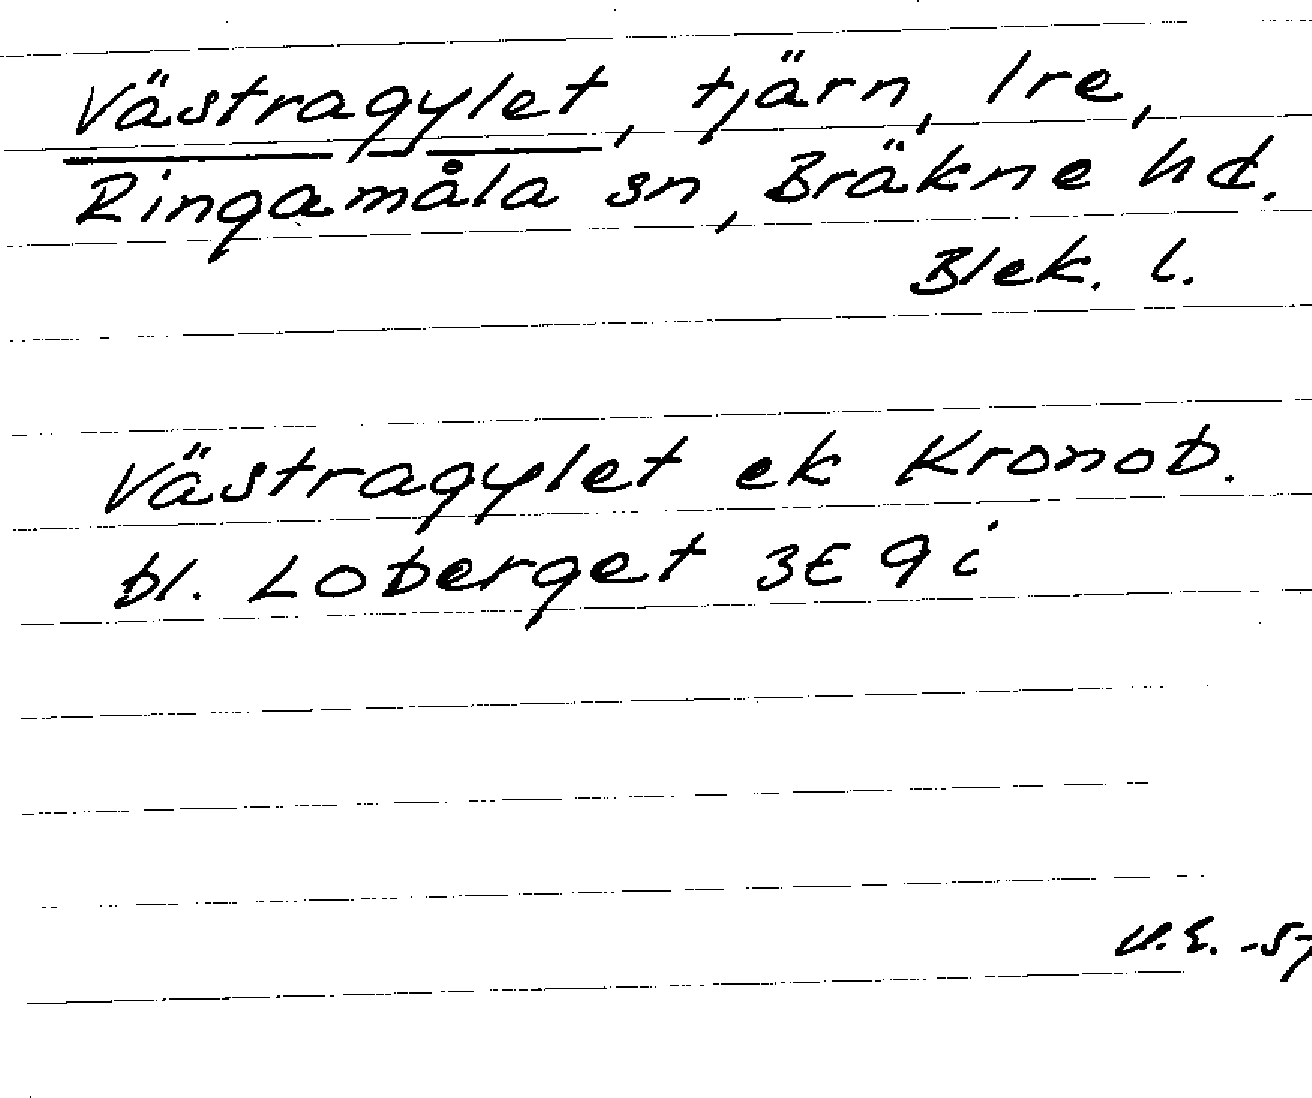 Västragylet, tjärn, Ire,
Ringamåla sn, Bräkne hd.
Blek. l.
Västragylet ek Kronob.
bl. Loberget 3E 9i
V.E. -57